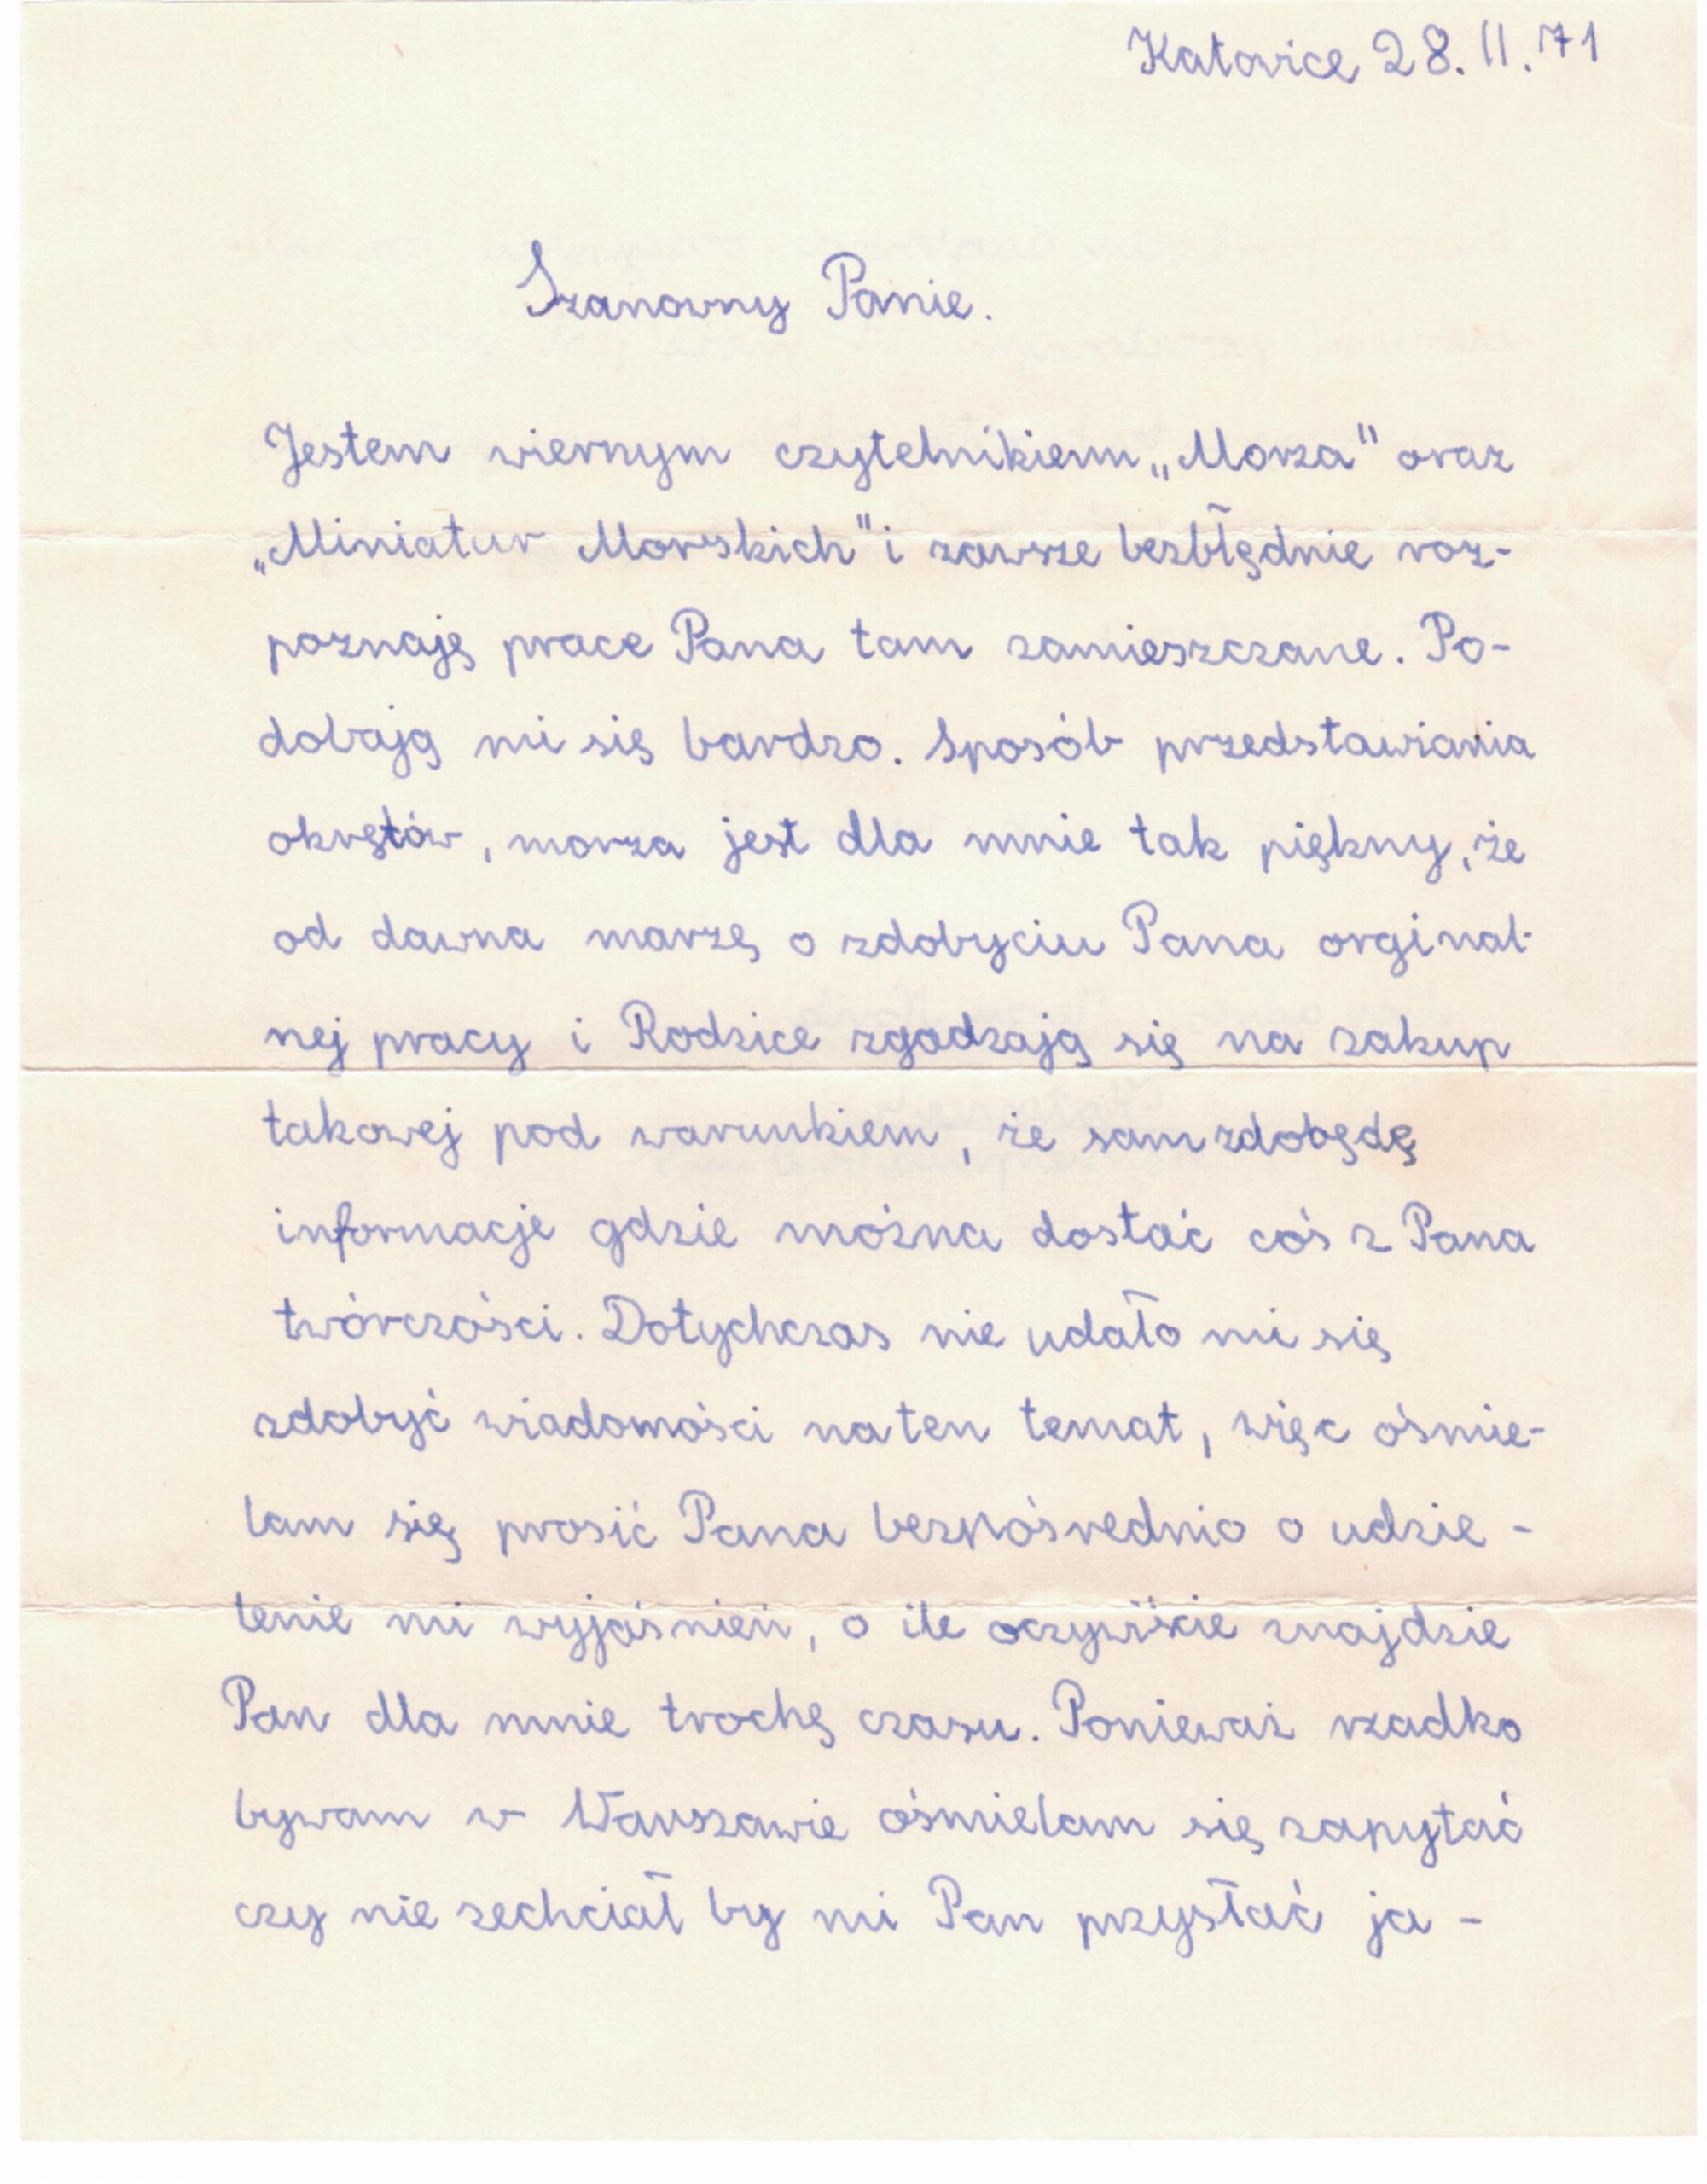 Katowice 28.II.71
Szanowny Panie.
Jestem wiernym czytelnikiem „Morza" oraz
„Miniatur Morskich" i zawsze bezbłędnie roz-
poznaję prace Pana tam zamieszczane. Po-
dobają mi się bardzo. Sposób przedstawiania
okrętów, morza jest dla mnie tak piękny, że
od dawna marzę o zdobyciu Pana orginal-
nej pracy i Rodzice zgadzają się na zakup
takowej pod warunkiem, że sam zdobędę
informacje gdzie można dostać coś z Pana
twórczości. Dotychczas nie udało mi się
zdobyć wiadomości na ten temat, więc ośmie-
lam się prosić Pana bezpośrednio o udzie-
lenie mi wyjaśnień, o ile oczywiście znajdzie
Pan dla mnie trochę czasu. Ponieważ rzadko
bywam w Warszawie ośmielam się zapytać
czy nie zechciał by mi Pan przysłać ja-